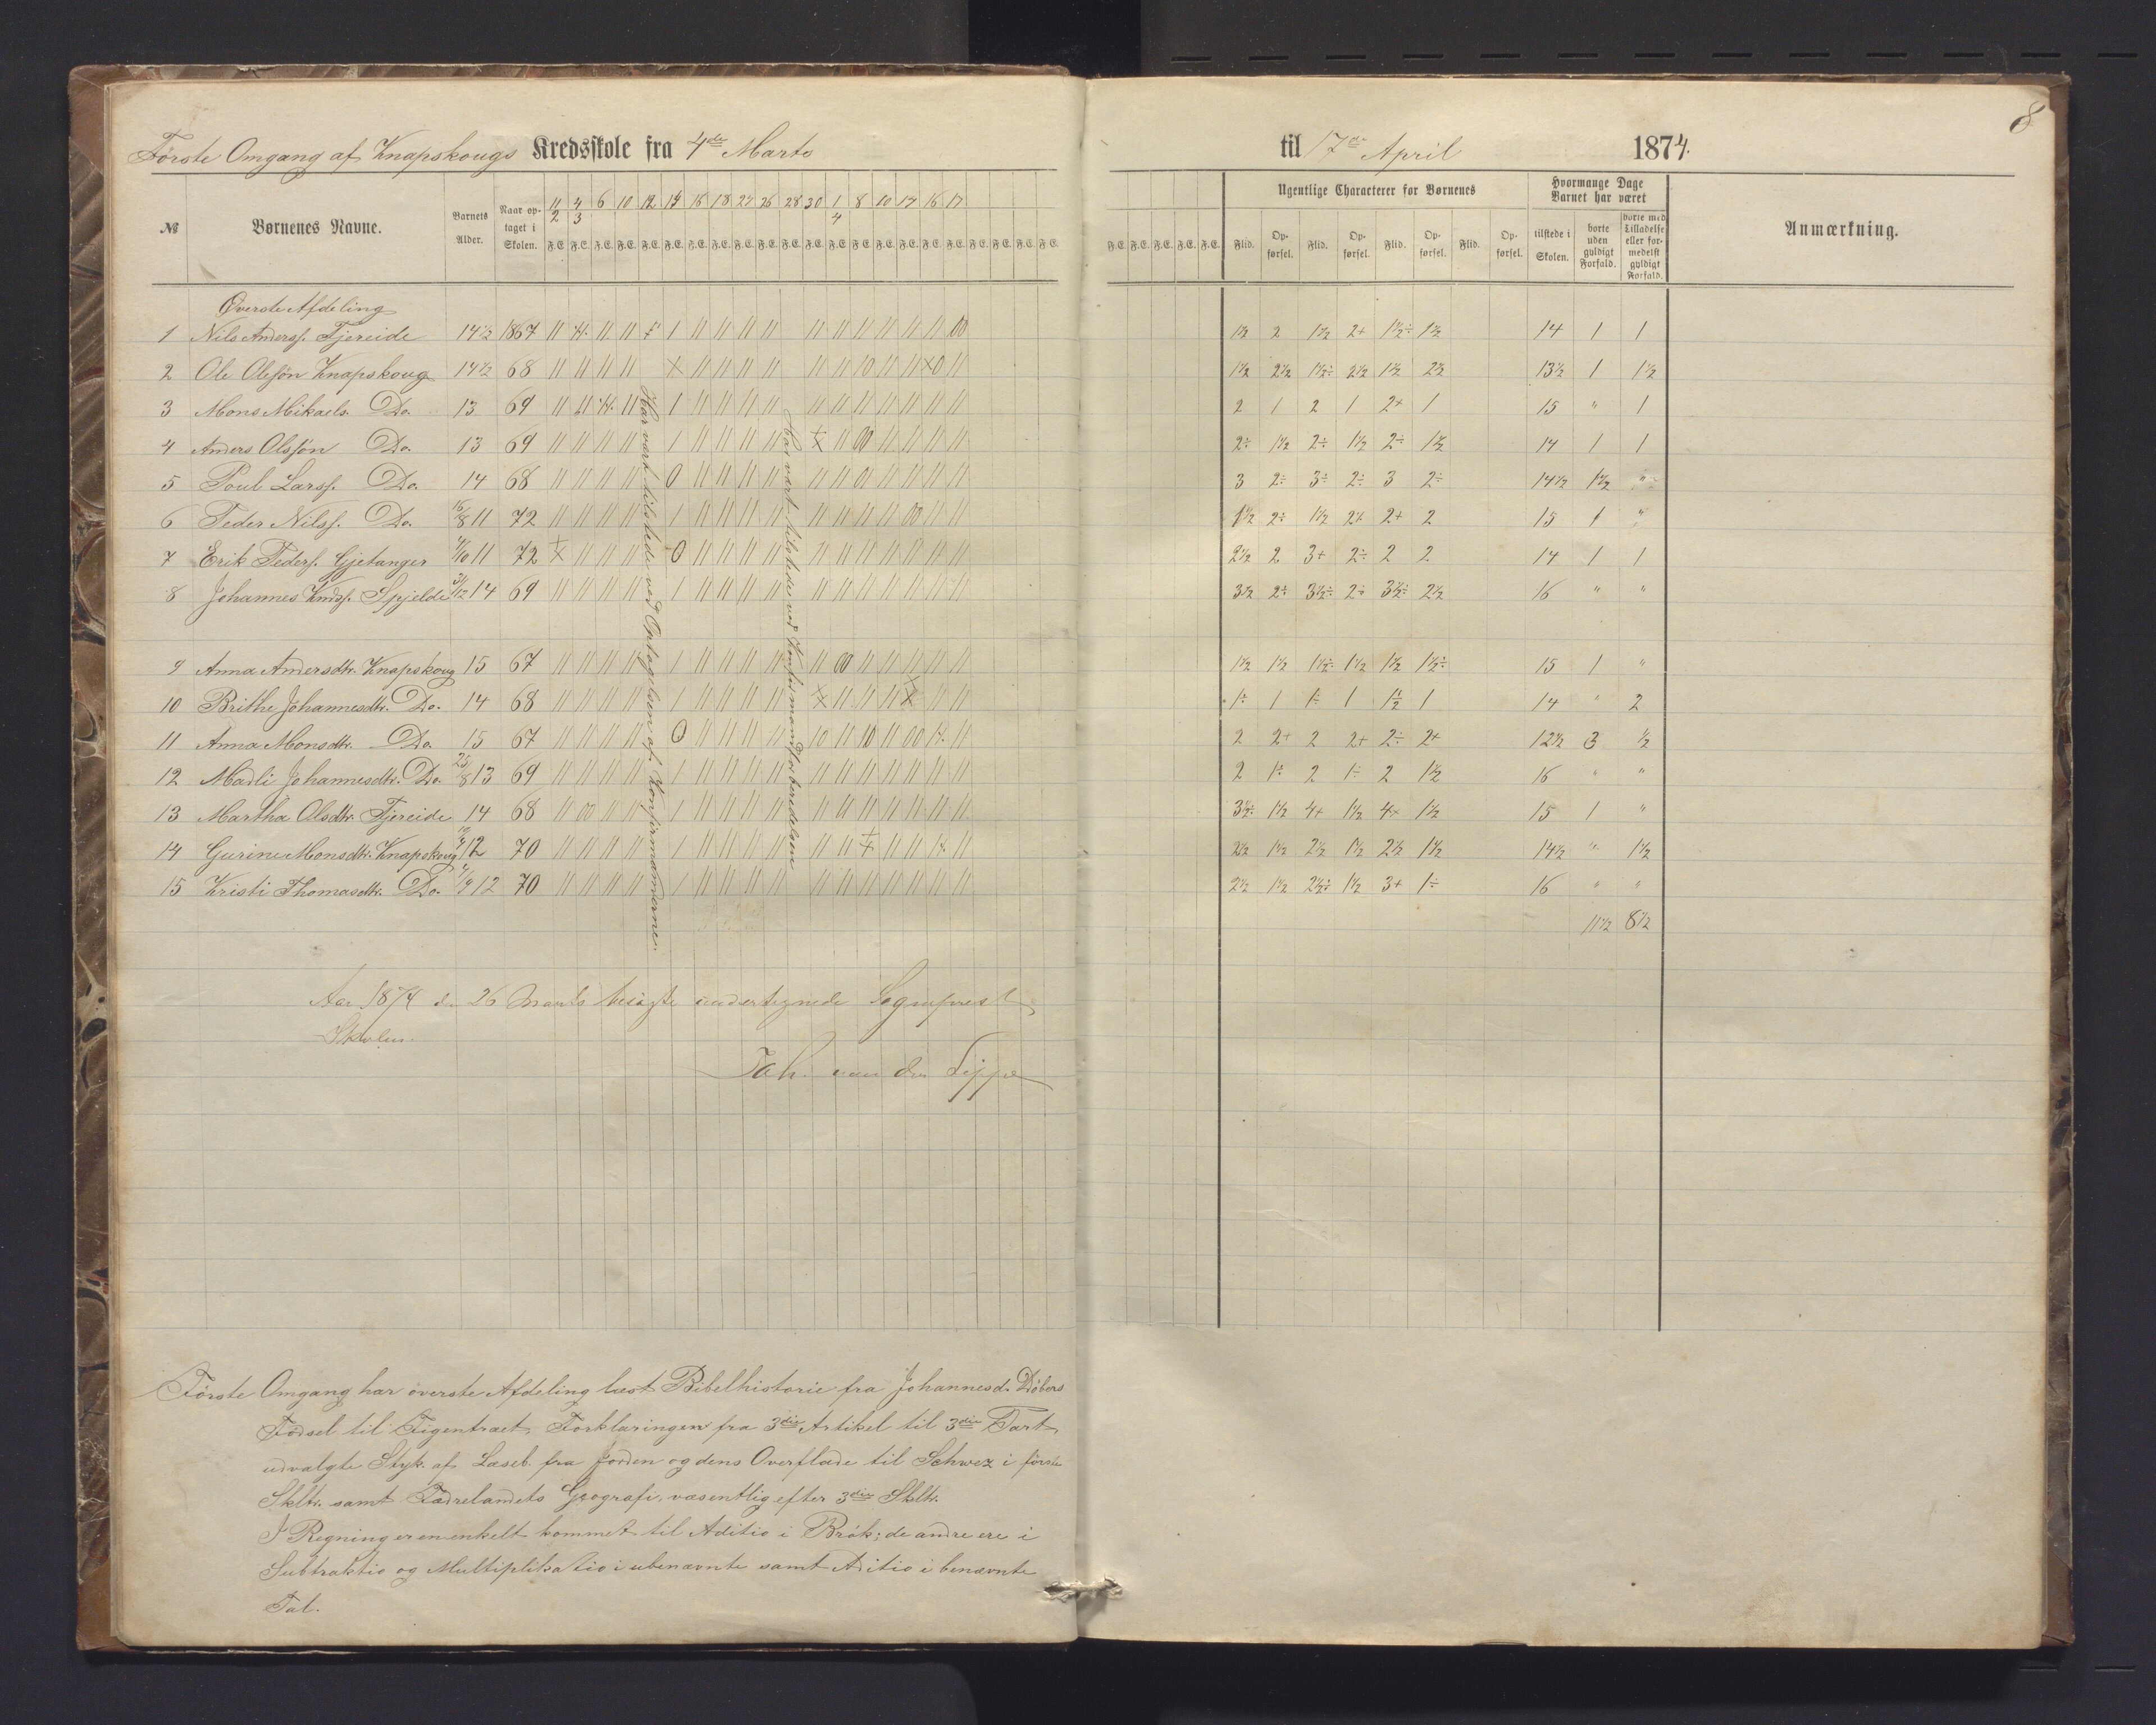 8
Første Omgang af Knapskougs Kredsskole fra 4de Marts til 17de April 1874.
№ Børnenes Navne. Barnets Alder. Naar optaget i Skolen. 11/2 4/3 6 10 12 14 16 18 24 26 28 30 1/4 8 10 14 16 17
F. E. F. E. F. E. F. E. F. E. F. E. F. E. F. E. F. E. F. E. F. E. F. E. F. E. F. E. F. E. F. E. F. E. F. E. F. E. F. E. F. E.
Ugentlige Characterer for Børnenes
Flid. Opførsel. Flid. Opførsel. Flid. Opførsel. Flid. Opførsel.
Hvormange Dage Barnet har været
tilstede i Skolen. borte uden gyldigt Forfald. borte med Tilladelse eller formedelst gyldigt Forfald.
Anmærkning.
Øverste Afdeling
1 Nils Anderss. Fjereide 14½ 1867 1½ 2 1½ 2+ 1½÷ 1½ 14 1 1
2 Ole Olesøn Knapskoug 14½ 68 1½ 2½ 1½÷ 2½ 1½ 2½ 13½ 1 1½
3 Mons Mikaels. Do. 13 69 2 1 2 1 2+ 1 15 " 1
4 Anders Olsøn Do. 13 69 2÷ 1½ 2÷ 1½ 2÷ 1½ 14 1 1
5 Poul Larss. Do. 14 68 3 2÷ 3÷ 2÷ 3 2÷ 14½ 1½ "
6 Peder Nilss. Do. 11 72 1½ 2÷ 1½ 2+ 2+ 2 15 1 "
7 Erik Peders. Gjetanger 11 72 2½ 2 3+ 2÷ 2 2 14 1 1
8 Johannes Knuds. Spjelde 14 69 3½ 2÷ 3½÷ 2÷ 3½÷ 2½ 16 " "
9 Anna Andersdtr. Knapskoug 15 67 1½ 1½ 1½÷ 1½ 1½ 1½÷ 15 1 "
10 Brithe Johannesdtr. Do. 14 68 1÷ 1 1÷ 1 1½ 1 14 " 2
11 Anna Monsdtr. Do. 15 67 2 2+ 2 2+ 2÷ 2+ 12½ 3 ½
12 Madli Johannesdtr. Do. 13 69 2 1÷ 2 1÷ 2 1½ 16 " "
13 Martha Olsdtr. Fjereide 14 68 3½÷ 1½ 4+ 1½ 4+ 1½ 15 1 "
14 Gurine Monsdtr. Knapskoug 12 70 2½ 1½ 2½ 1½ 2½ 1½ 14½ " 1½
15 Kristi Thomasdtr. Do. 12 70 2½ 1½ 2½÷ 1½ 3+ 1÷ 16 " "
11½ 8½
Har vært tilstede ved Optagelsen af Konfirmanderne.
Har vært tilstede ved Konfirmandforberedelsen
Aar 1874 d. 26 Marts besøgte undertegnede Sogneprest
Skolen.
Jah. von der Lippe
Første Omgang har øverste Afdeling læst Bibelhistorie fra Johannes d. Døbers
Fødsel til Figentræet, Forklaringen fra 3die Artikel til 3die Part
udvalgte Styk. af Læseb. fra Jorden og dens Overflade til Schwez i første
Skltr. samt Fædrelandets Geografi, væsentlig efter 3die Skltr.
I Regning er en enkelt kommet til Aditio i Brøk; de andre ere i
Subtraktio og Multiplikatio i ubenævnte samt Aditio i benævnte
Tal.